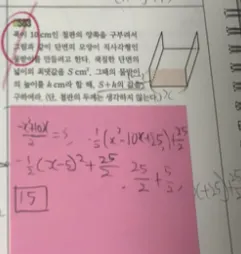 폭이 10 cm인 철판의 양쪽을 구부려서
그림과 같이 단면의 모양이 직사각형인
물받이를 만들려고 한다. 색칠한 단면의
넓이의 최댓값을 S cm², 그때의 물받이
의 높이를 h cm라 할 때, S+h의 값을
구하여라. (단, 철판의 두께는 생각하지 않는다.)
x
-x²+10x/2 = S, -1/2(x²-10x+25)+25/2
-1/2(x-5)²+25/2
25/2+5/2
15